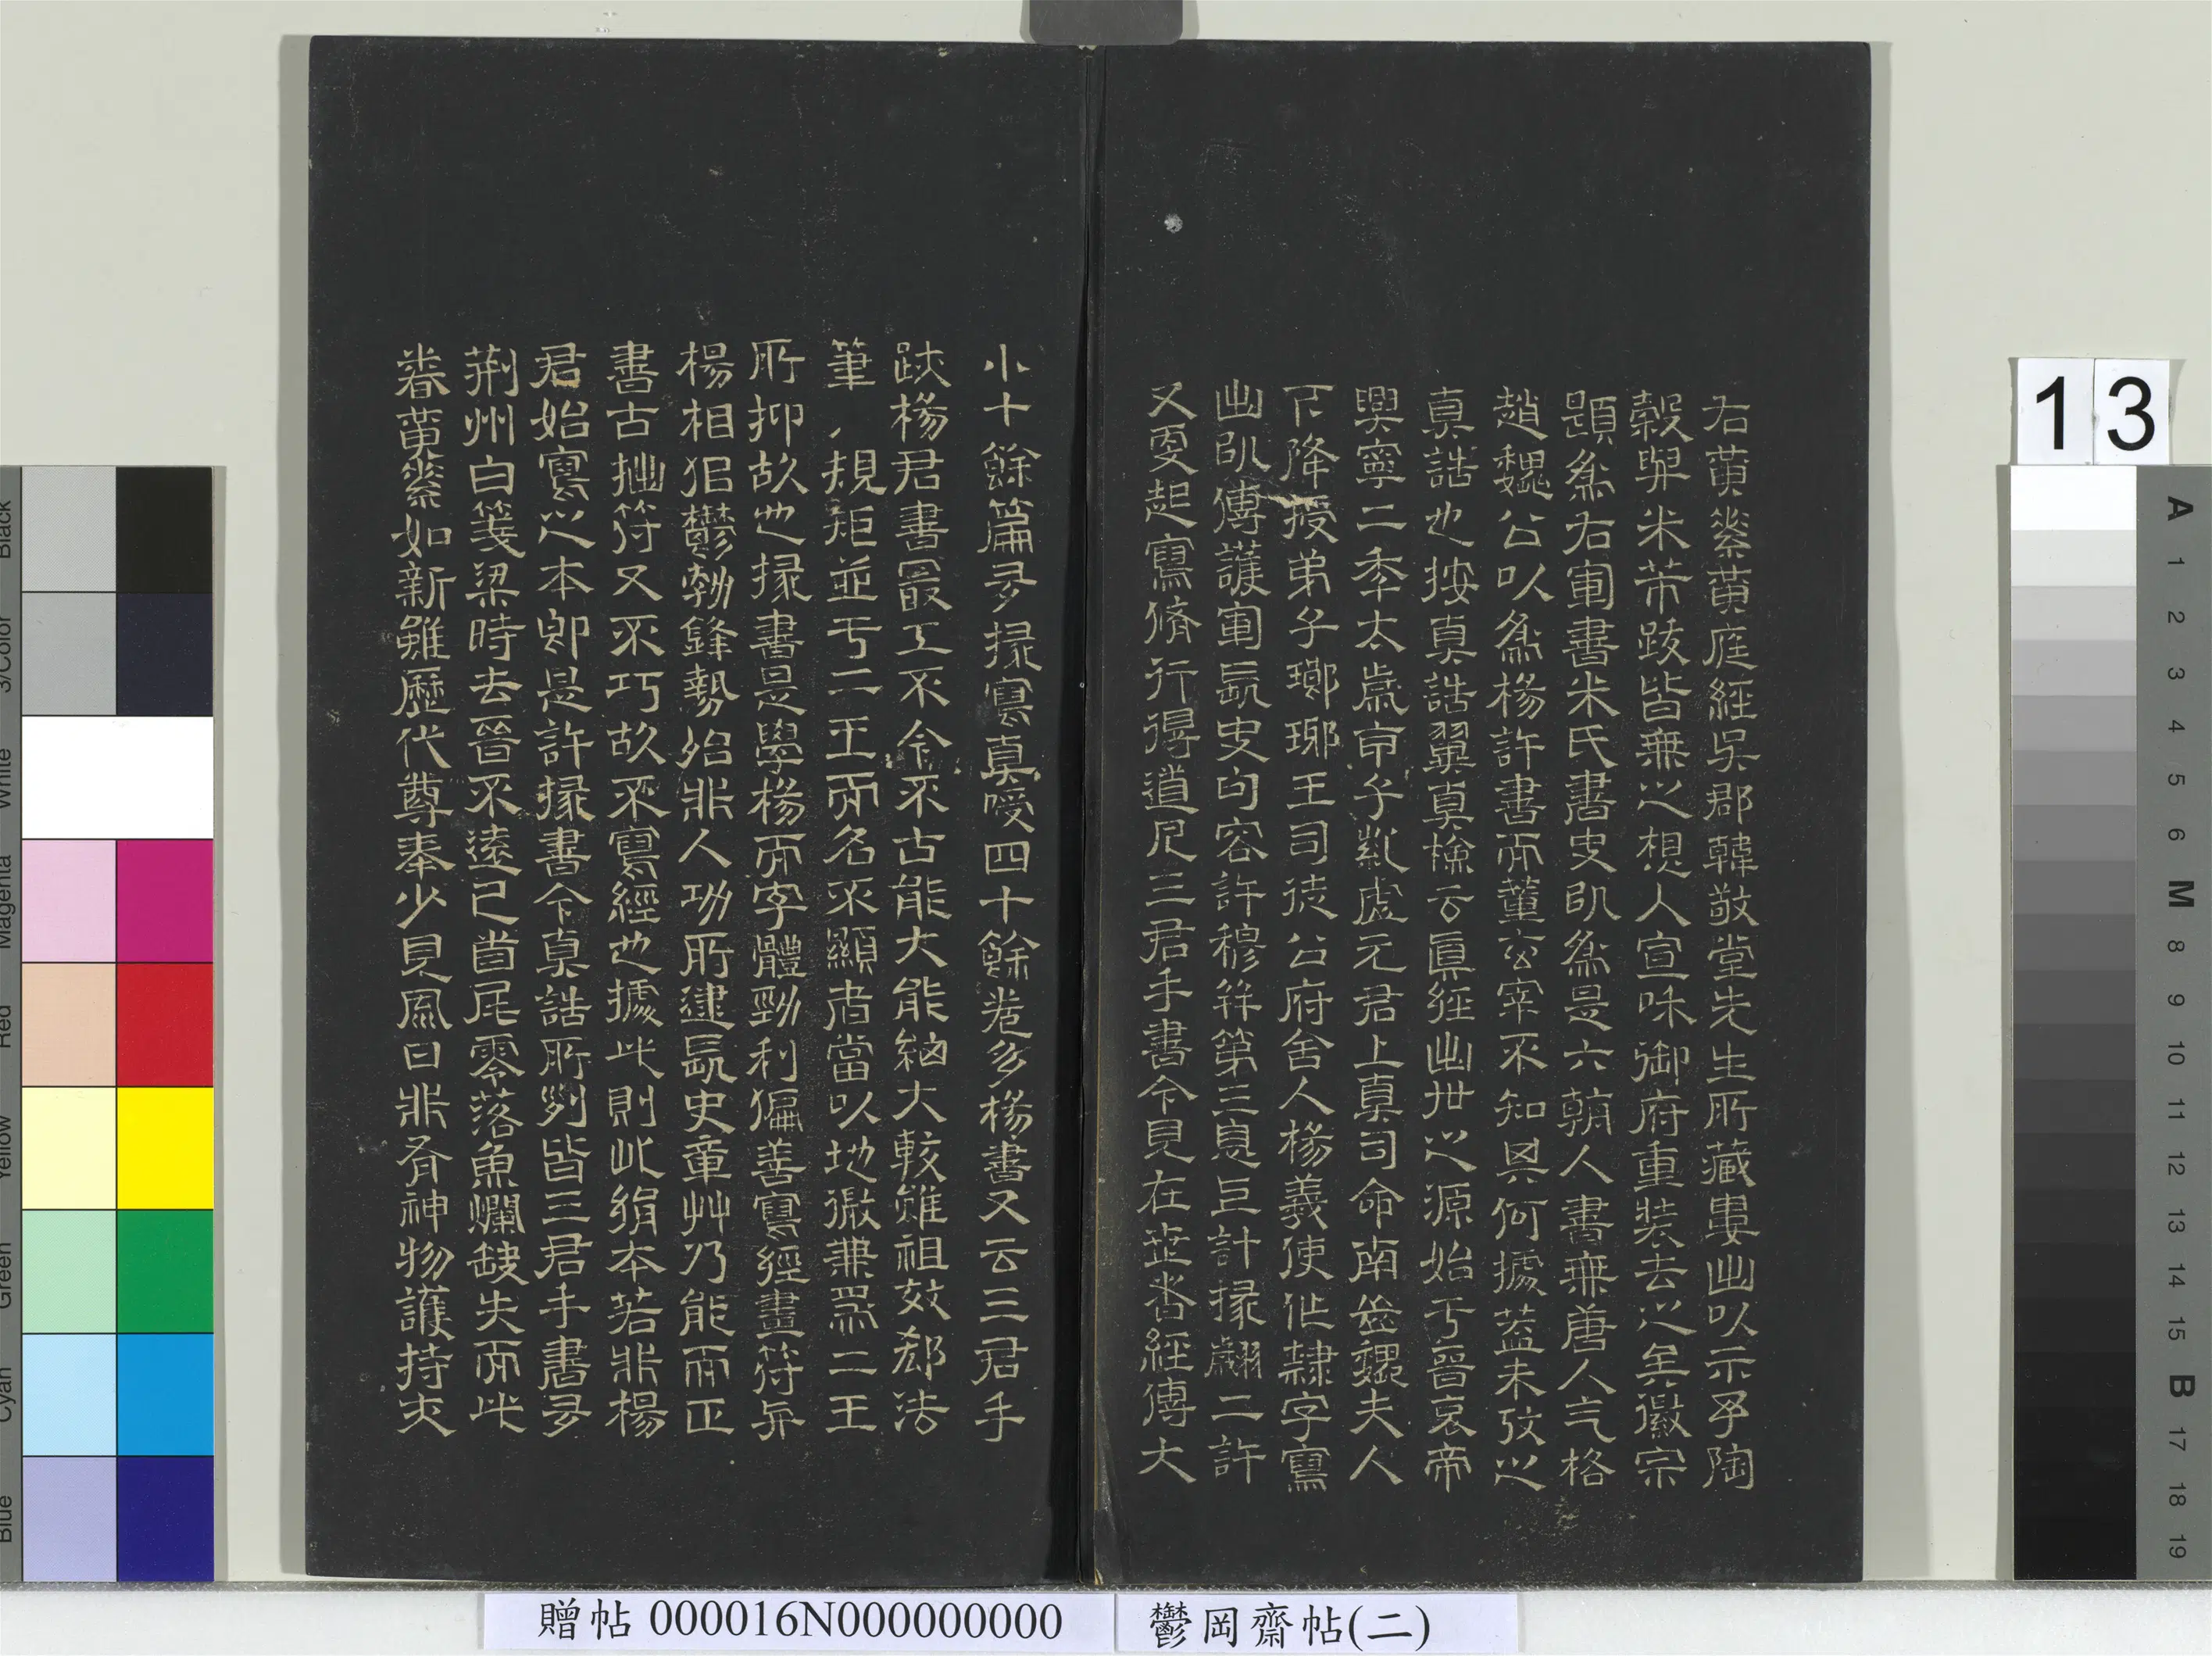 右黃素黃庭經吳郡韓敬堂先生所藏婁出以示予陶
穀畢米芾跋皆無之想人宣和御府重裝去之矣徽宗
題為右軍書米氏書史則為是六朝人書無唐人气格
趙魏公以為楊許書而董玄宰不知其何據蓋未攷之
真誥也按真誥翼真檢云真經出世之源始于晉哀帝
興寧二季太歲甲子紫虛元君上真司命南嶽魏夫人
下降授弟子瑯琊王司徒公府舍人楊羲使作隸字寫
出以傳護軍長史句容許穆并第三息上計掾翽二許
又更起寫脩行得道凡三君手書今見在世者經傳大
小十餘篇多掾寫真嗳四十餘卷多楊書又云三君手
跡楊君書最工不今不古能大能細大較雖祖效郗法
筆 規矩並于二王而名不顯者當以地微兼為二王
所抑故也掾書是學楊而字體勁利偏善寫經畫符與
楊相佀鬱勃鋒勢殆非人功所逮長史章艸乃能而正
書古拙符又不巧故不寫經也據此則此絹本若非楊
君始寫之本即是許掾書今真誥所列皆三君手書多
荊州白箋梁時去晉不遠已首尾零落魚爛缺失而此
卷黃素如新雖歷代尊奉少見風日非有神物護持夫
13
贈帖 000016N000000000
鬱岡齋帖(二)
Black
3/Color
White
Magenta
Red
Yellow
Green
Cyan
Blue
A
1
2
3
4
5
6
M
8
9
10
11
12
13
14
15
B
17
18
19